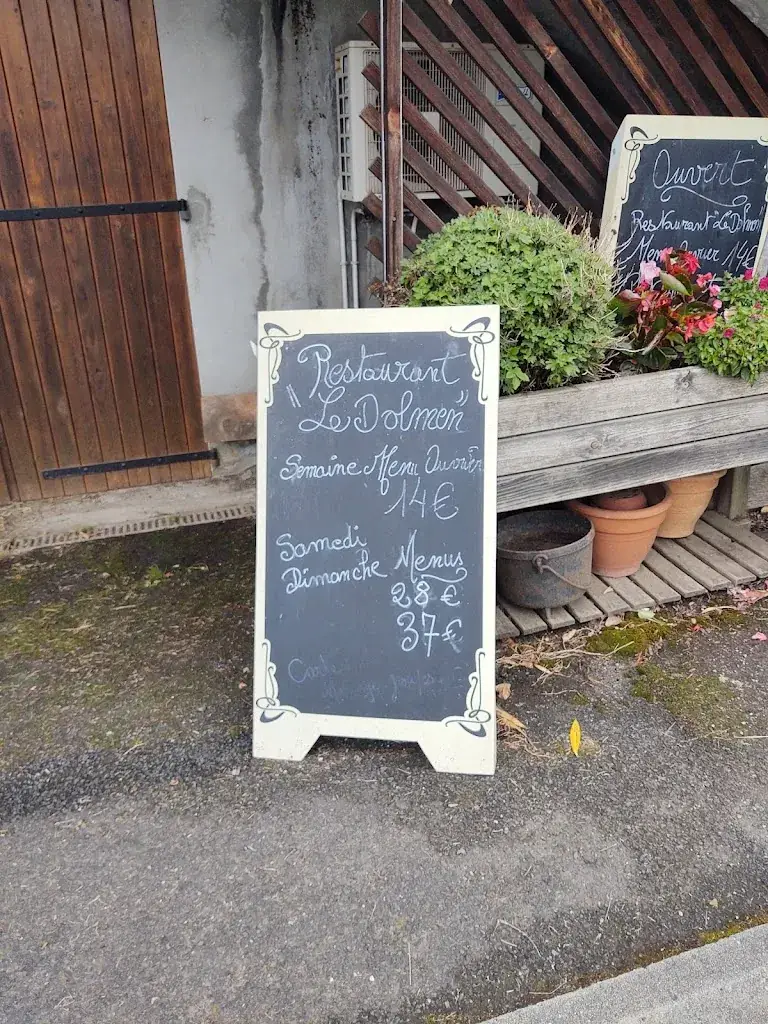 Restaurant
"Le Dolmen"
Semaine Menu Ouvrier
14€
Samedi
Dimanche Menus
28 €
37 €
Ouvert
Restaurant "Le Dolmen
Menu Ouvrier 14€